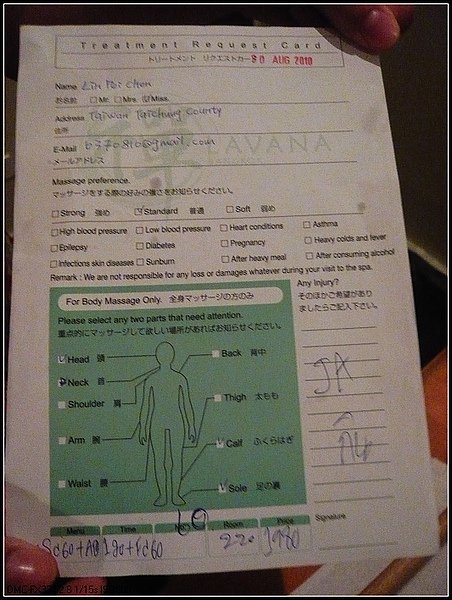 Treatment Request Card
トリートメント リクエストカード 30 AUG 2010
Name Lin Pei Chen
お名前 □Mr. □Mrs. ☑Miss.
Address Taiwan Taichung County
住所
E-Mail
メールアドレス
LAVANA
Massage preference.
マッサージをする際の好みの強さをお知らせください。
□Strong 強め ☑Standard 普通 □Soft 弱め
□High blood pressure □Low blood pressure □Heart conditions □Asthma
□Epilepsy □Diabetes □Pregnancy □Heavy colds and fever
□Infections skin diseases □Sunburn □After heavy meal □After consuming alcohol
Remark : We are not responsible for any loss or damages whatever during your visit to the spa.
For Body Massage Only. 全身マッサージの方のみ
Please select any two parts that need attention.
重点的にマッサージして欲しい場所があればお知らせください。
Head 頭
Back 背中
Neck 首
Shoulder 肩
Thigh 太もも
Arm 腕
Calf ふくらはぎ
Waist 腰
Sole 足の裏
Any Injury?
そのほかご希望があり
ましたらご記入下さい。
Signature
Menu Time Room Price
220 1980